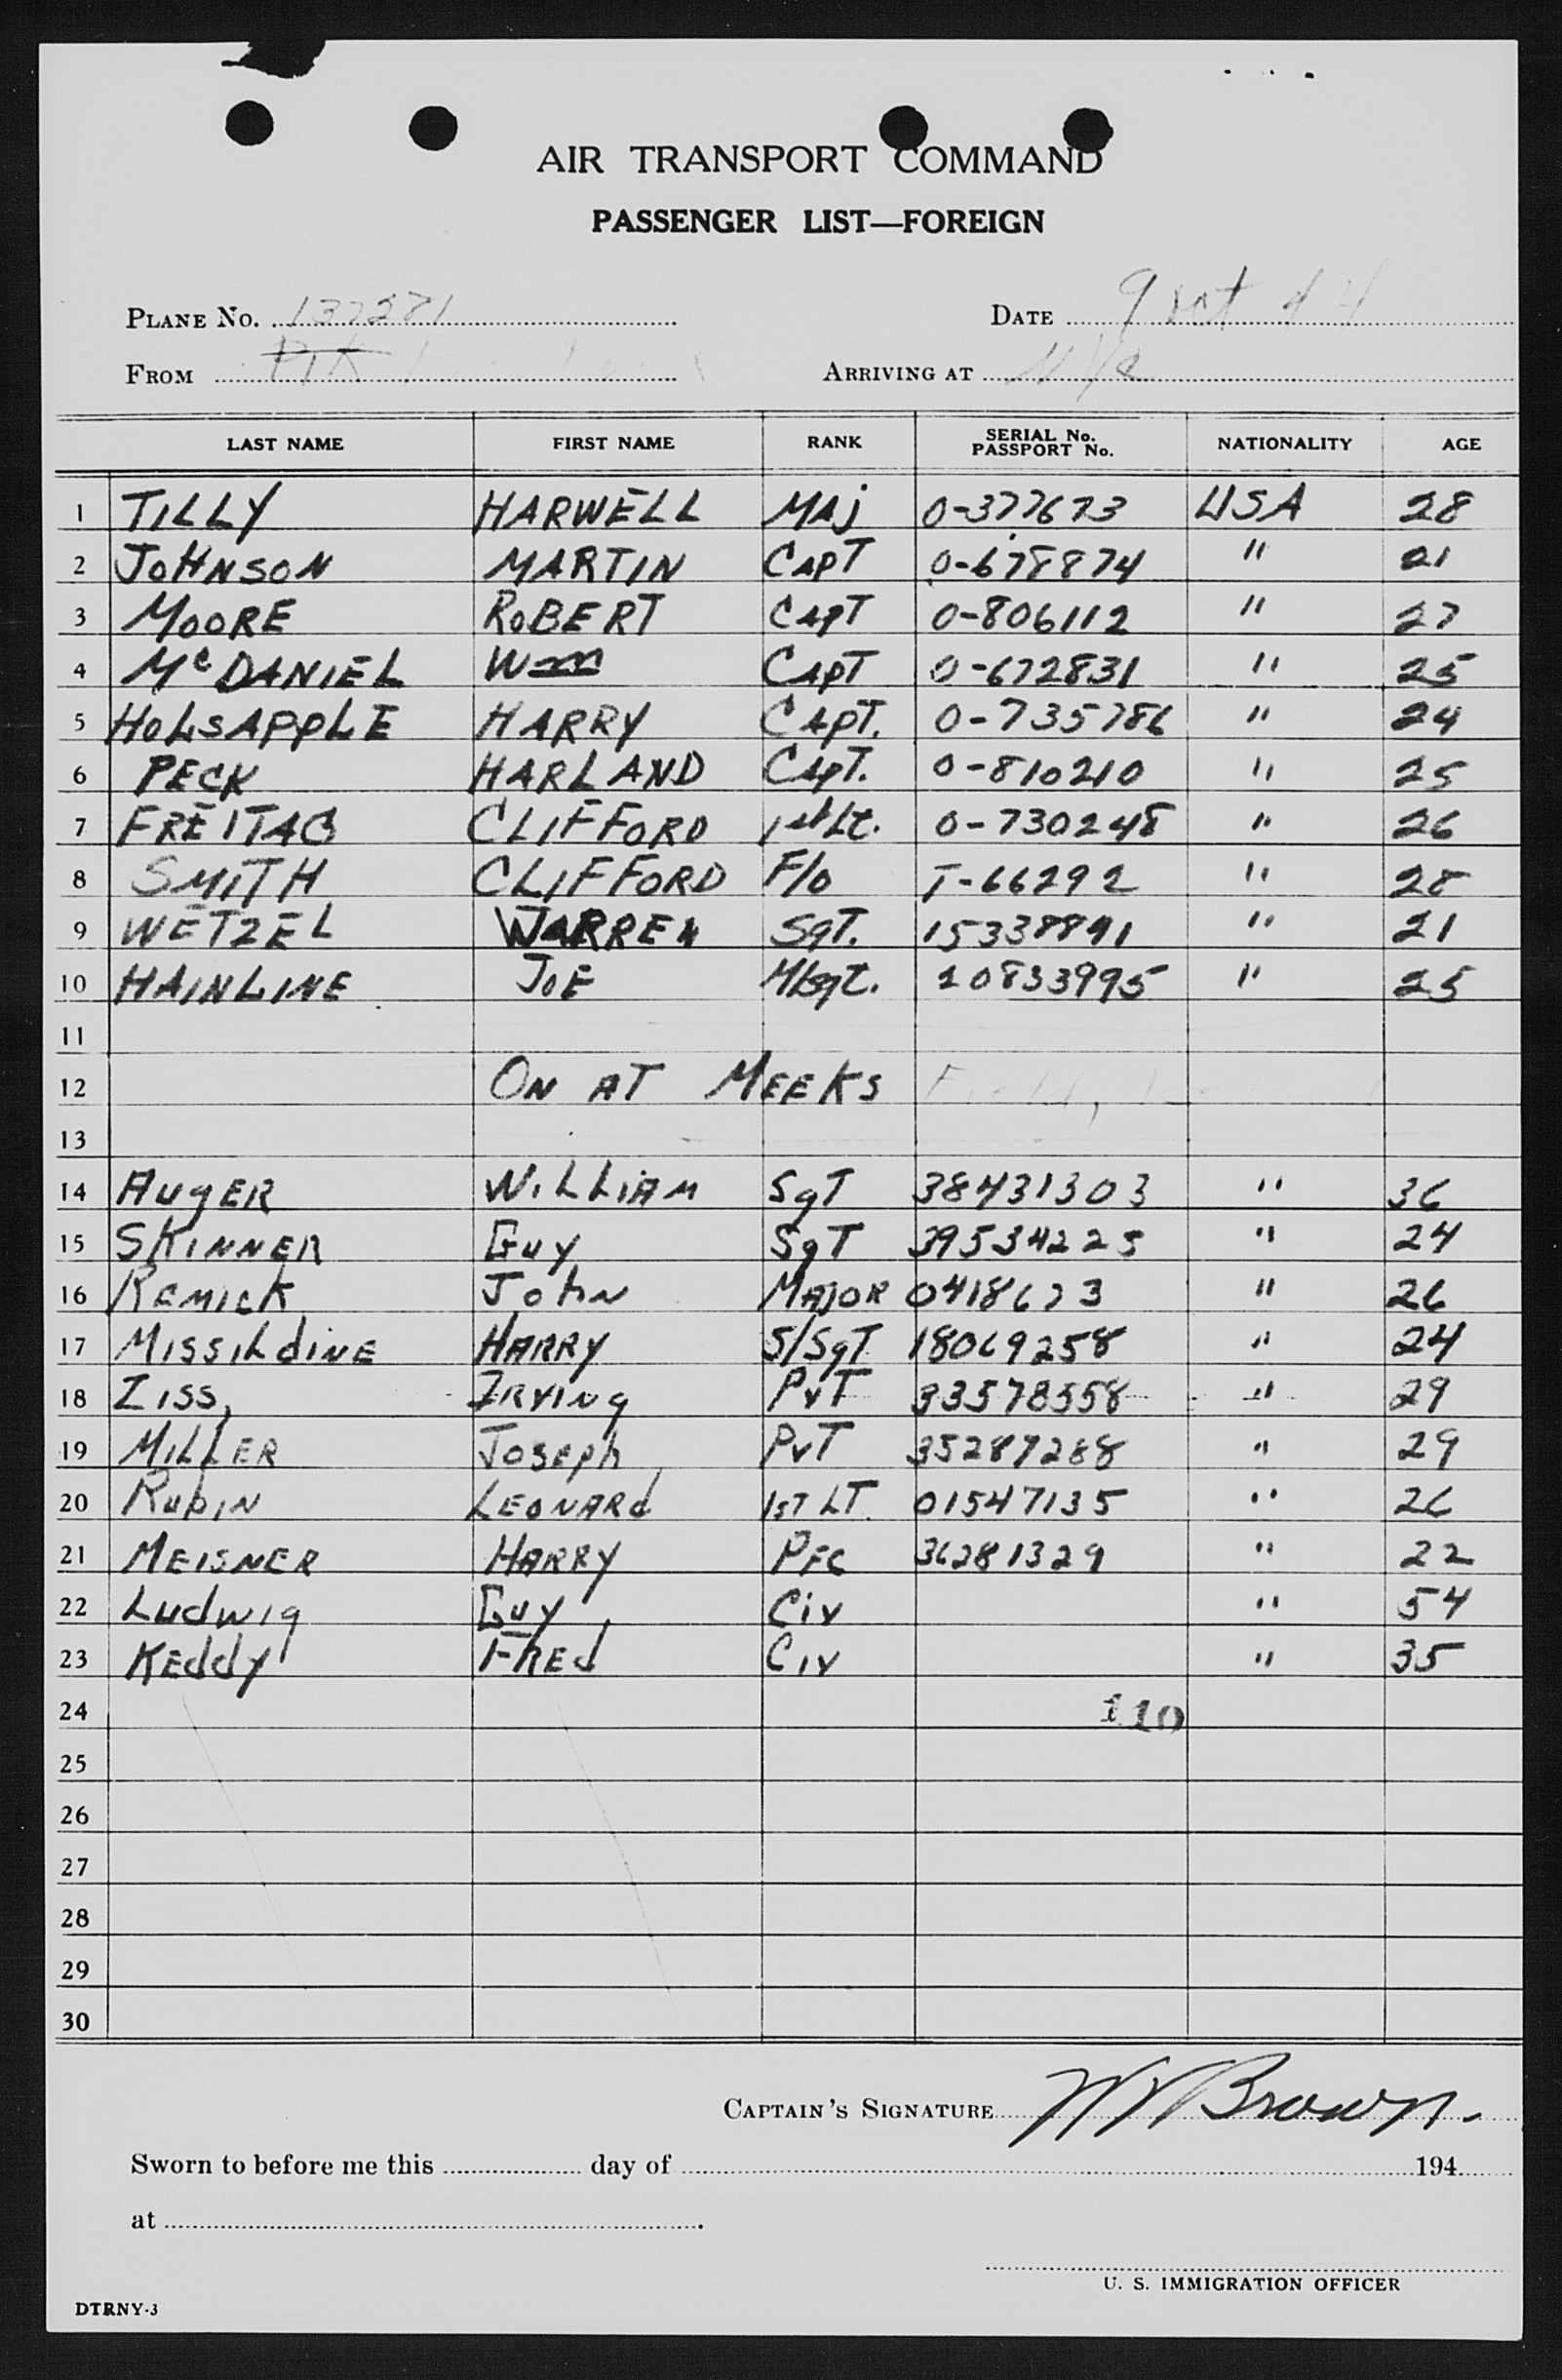 AIR TRANSPORT COMMAND
PASSENGER LIST—FOREIGN
PLANE NO. 137271 DATE 9 Oct 44
FROM PIK ARRIVING AT NYC
LAST NAME FIRST NAME RANK SERIAL No. PASSPORT No. NATIONALITY AGE
1 TILLY HARWELL MAJ O-377673 USA 28
2 JOHNSON MARTIN CAPT O-678874 " 21
3 MOORE ROBERT CAPT O-806112 " 27
4 McDANIEL Wm CAPT O-672831 " 25
5 HOLSAPPLE HARRY CAPT. O-735786 " 24
6 PECK HARLAND CAPT. O-810210 " 25
7 FREITAG CLIFFORD 1st Lt. O-730248 " 26
8 SMITH CLIFFORD F/O T-66292 " 28
9 WETZEL WARREN SGT. 15338891 " 21
10 HAINLINE JOE M/Sgt. 20833995 " 25
11
12 ON AT MEEKS Field,
13
14 AUGER WILLIAM SgT 38431303 " 36
15 SKINNER GUY SgT 39534225 " 24
16 REMICK JOHN MAJOR 0418623 " 26
17 MISSILDINE HARRY S/SgT 18069258 " 24
18 ZISS, IRVING PVT 33578558 " 29
19 MILLER JOSEPH PVT 35287288 " 29
20 RUBIN LEONARD 1ST LT. 01547135 " 26
21 MEISNER HARRY PFC 36281329 " 22
22 LUDWIG GUY CIV " 54
23 KEDDY FRED CIV " 35
24 110
25
26
27
28
29
30
CAPTAIN'S SIGNATURE W V Brown.
Sworn to before me this day of 194
at .
U. S. IMMIGRATION OFFICER
DTRNY-3